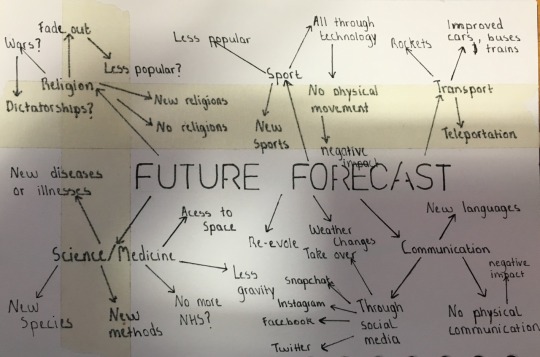 Fade out
Wars?
Less popular?
Religion
Dictatorships?
New religions
No religions
Less popular
Sport
All through
technology
No physical
movement
negative
impact
New
sports
Rockets
Improved
cars, buses
& trains
Transport
Teleportation
FUTURE FORECAST
New diseases
or illnesses
Science/Medicine
Acess to
Space
Less
gravity
No more
NHS?
New
methods
New
Species
Re-evole
Weather
Changes
Take over
Communication
New languages
negative
impact
No physical
communication
Through
social
media
Snapchat
Instagram
Facebook
Twitter